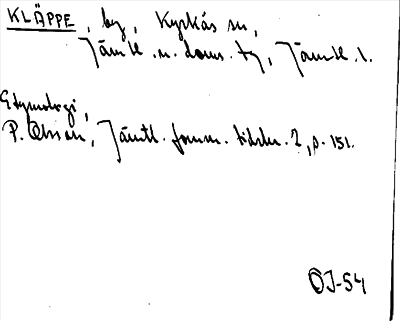 KLÄPPE, by, Kyrkås sn,
Jämtl. n. doms. tg, Jämtl. l.
Etymologi,
P. Olsson, Jämtl. fornm. tidskr. 2, s. 151.
OJ-54